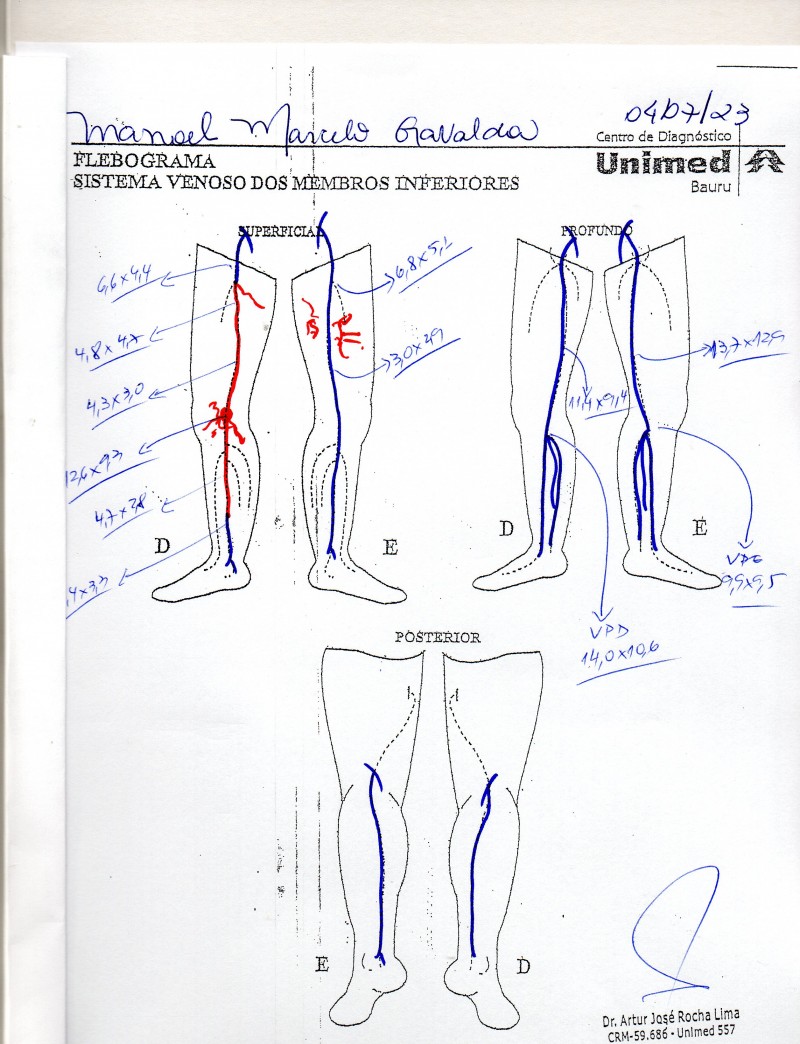 Manoel Marcelo Gavalda
04/07/23
Centro de Diagnóstico
Unimed
Bauru
FLEBOGRAMA
SISTEMA VENOSO DOS MEMBROS INFERIORES
SUPERFICIAL
PROFUNDO
6,6x4,4
6,8x5,1
4,8x4,7
3,0x2,9
13,7x12,9
4,3x3,0
11,4x9,4
12,6x9,3
4,7x3,8
D
E
D
E
,4x3,3
VPE
9,9x9,5
VPD
14,0x10,6
POSTERIOR
E
D
Dr. Artur José Rocha Lima
CRM-59.686 - Unimed 557